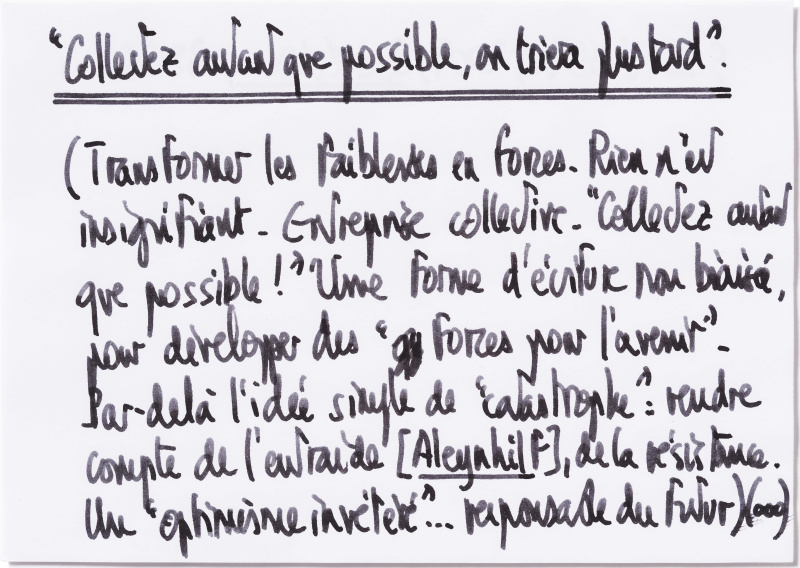 "Collectez autant que possible, on triera plus tard".
(Transformer les faiblesses en forces. Rien n'est
insignifiant. Entreprise collective. "Collectez autant
que possible !" Une forme d'écriture non biaisée,
pour développer des " forces pour l'avenir".
Par-delà l'idée simple de "catastrophe": rendre
compte de l'entraide [Aleynhilf], de la résistance.
Un "optimisme invétéré"... responsable du futur)(ooo)